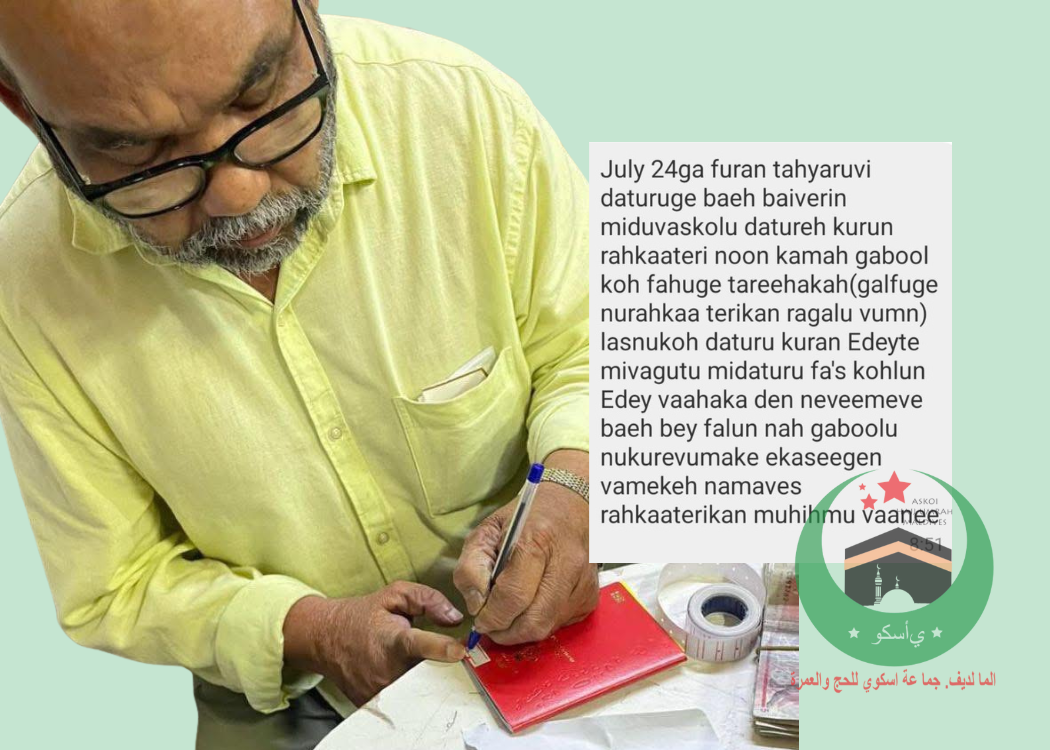 July 24ga furan tahyaruvi
daturuge baeh baiverin
miduvaskolu datureh kurun
rahkaateri noon kamah gabool
koh fahuge tareehakah(galfuge
nurahkaa terikan ragalu vumn)
lasnukoh daturu kuran Edeyte
mivagutu midaturu fa's kohlun
Edey vaahaka den neveemeve
baeh bey falun nah gaboolu
nukurevumake ekaseegen
vamekeh namaves
rahkaaterikan muhihmu vaanee
8:51
ASKOI
MALDIVES
يأسكو
الما لديف. جما عة اسكوي للحج والعمرة